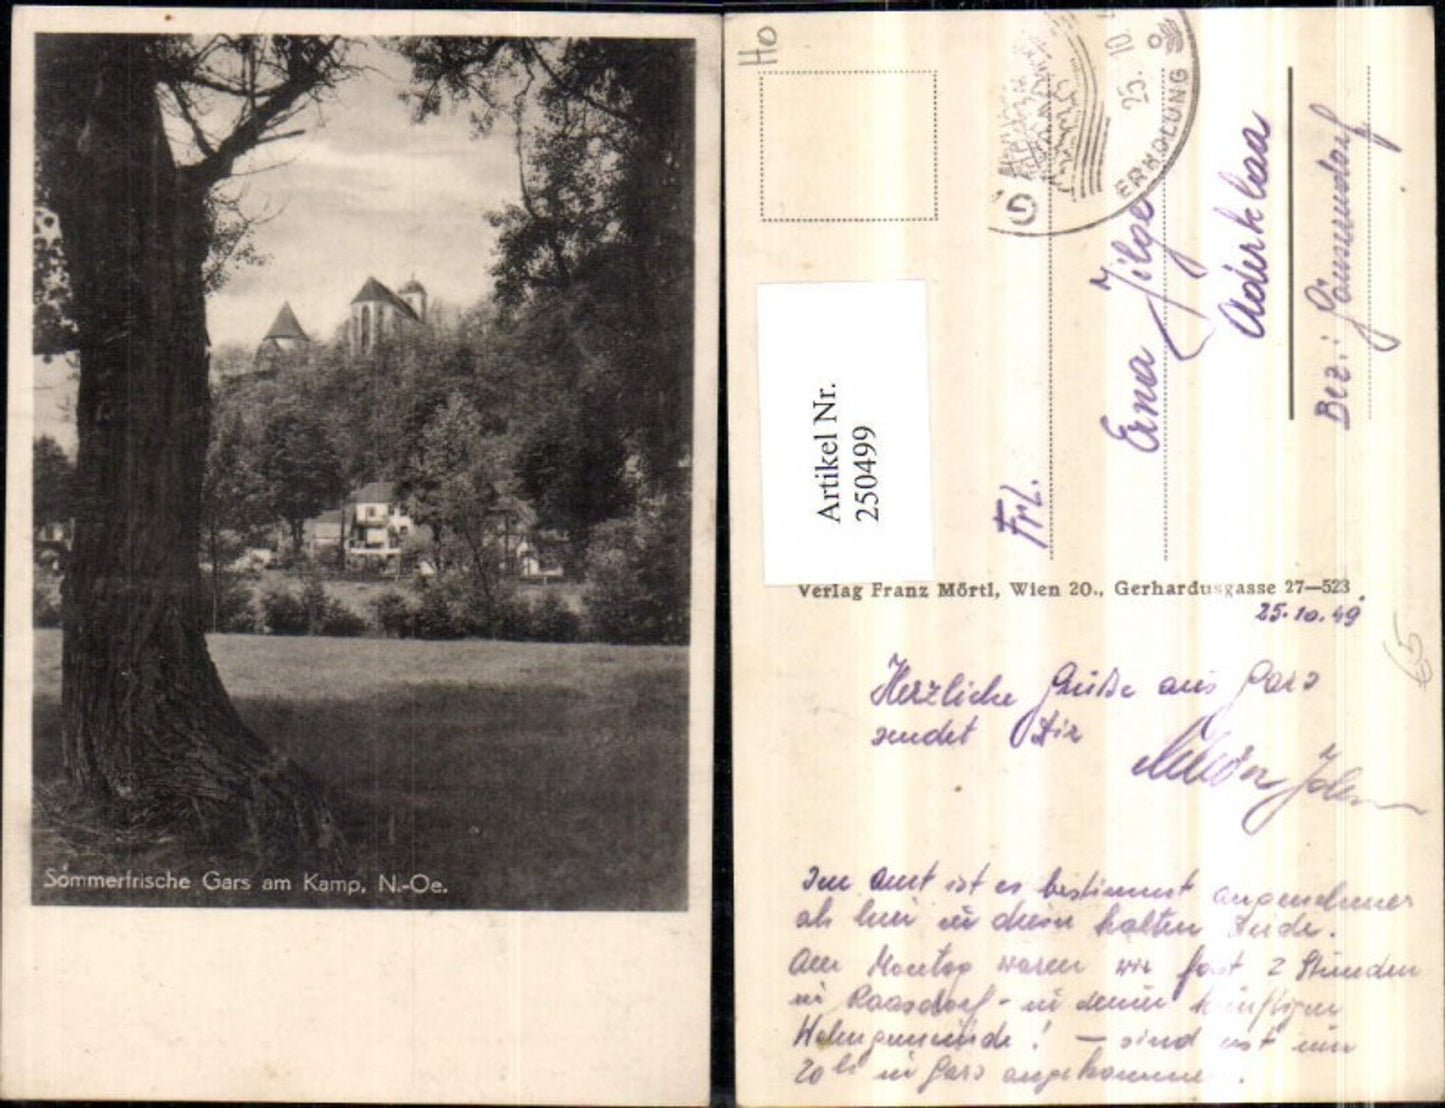 Sommerfrische Gars am Kamp, N.-Oe.
Ho
25. 10.
ERHOLUNG
Artikel Nr.
250499
Frl.
Erna Jilge
Aderklaa
Bez.: Gänserndorf
Verlag Franz Mörtl, Wien 20., Gerhardusgasse 27—523
25.10.49
€5
Herzliche Grüße aus Gars
sendet Dir
Im Amt ist es bestimmt angenehmer
als hier in dieser kalten
Am Montag waren wir fast 2 Stunden
in Raasdorf - in deiner künftigen
Wohngemeinde! - sind erst um
20h in Gars angekommen.